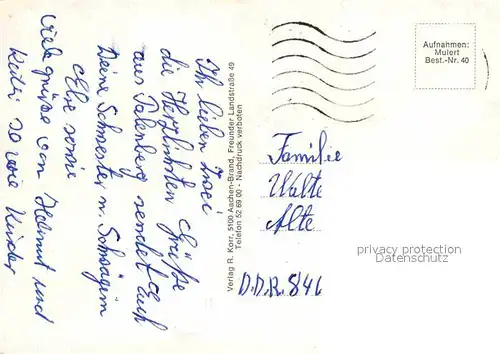 Ihr lieben zwei
die Herzlichsten Grüße
aus Palenberg sendet Euch
Deine Schwester u. Schwägerin
Else sowie
viele grüße von Helmut und
Käthi so wie Kinder
Verlag R. Korr, 5100 Aachen-Brand, Freunder Landstraße 49
Telefon 52 69 00 - Nachdruck verboten
Aufnahmen:
Mulert
Best.-Nr. 40
Familie
Walte
Alte
D.D.R. 846
privacy protection
Datenschutz